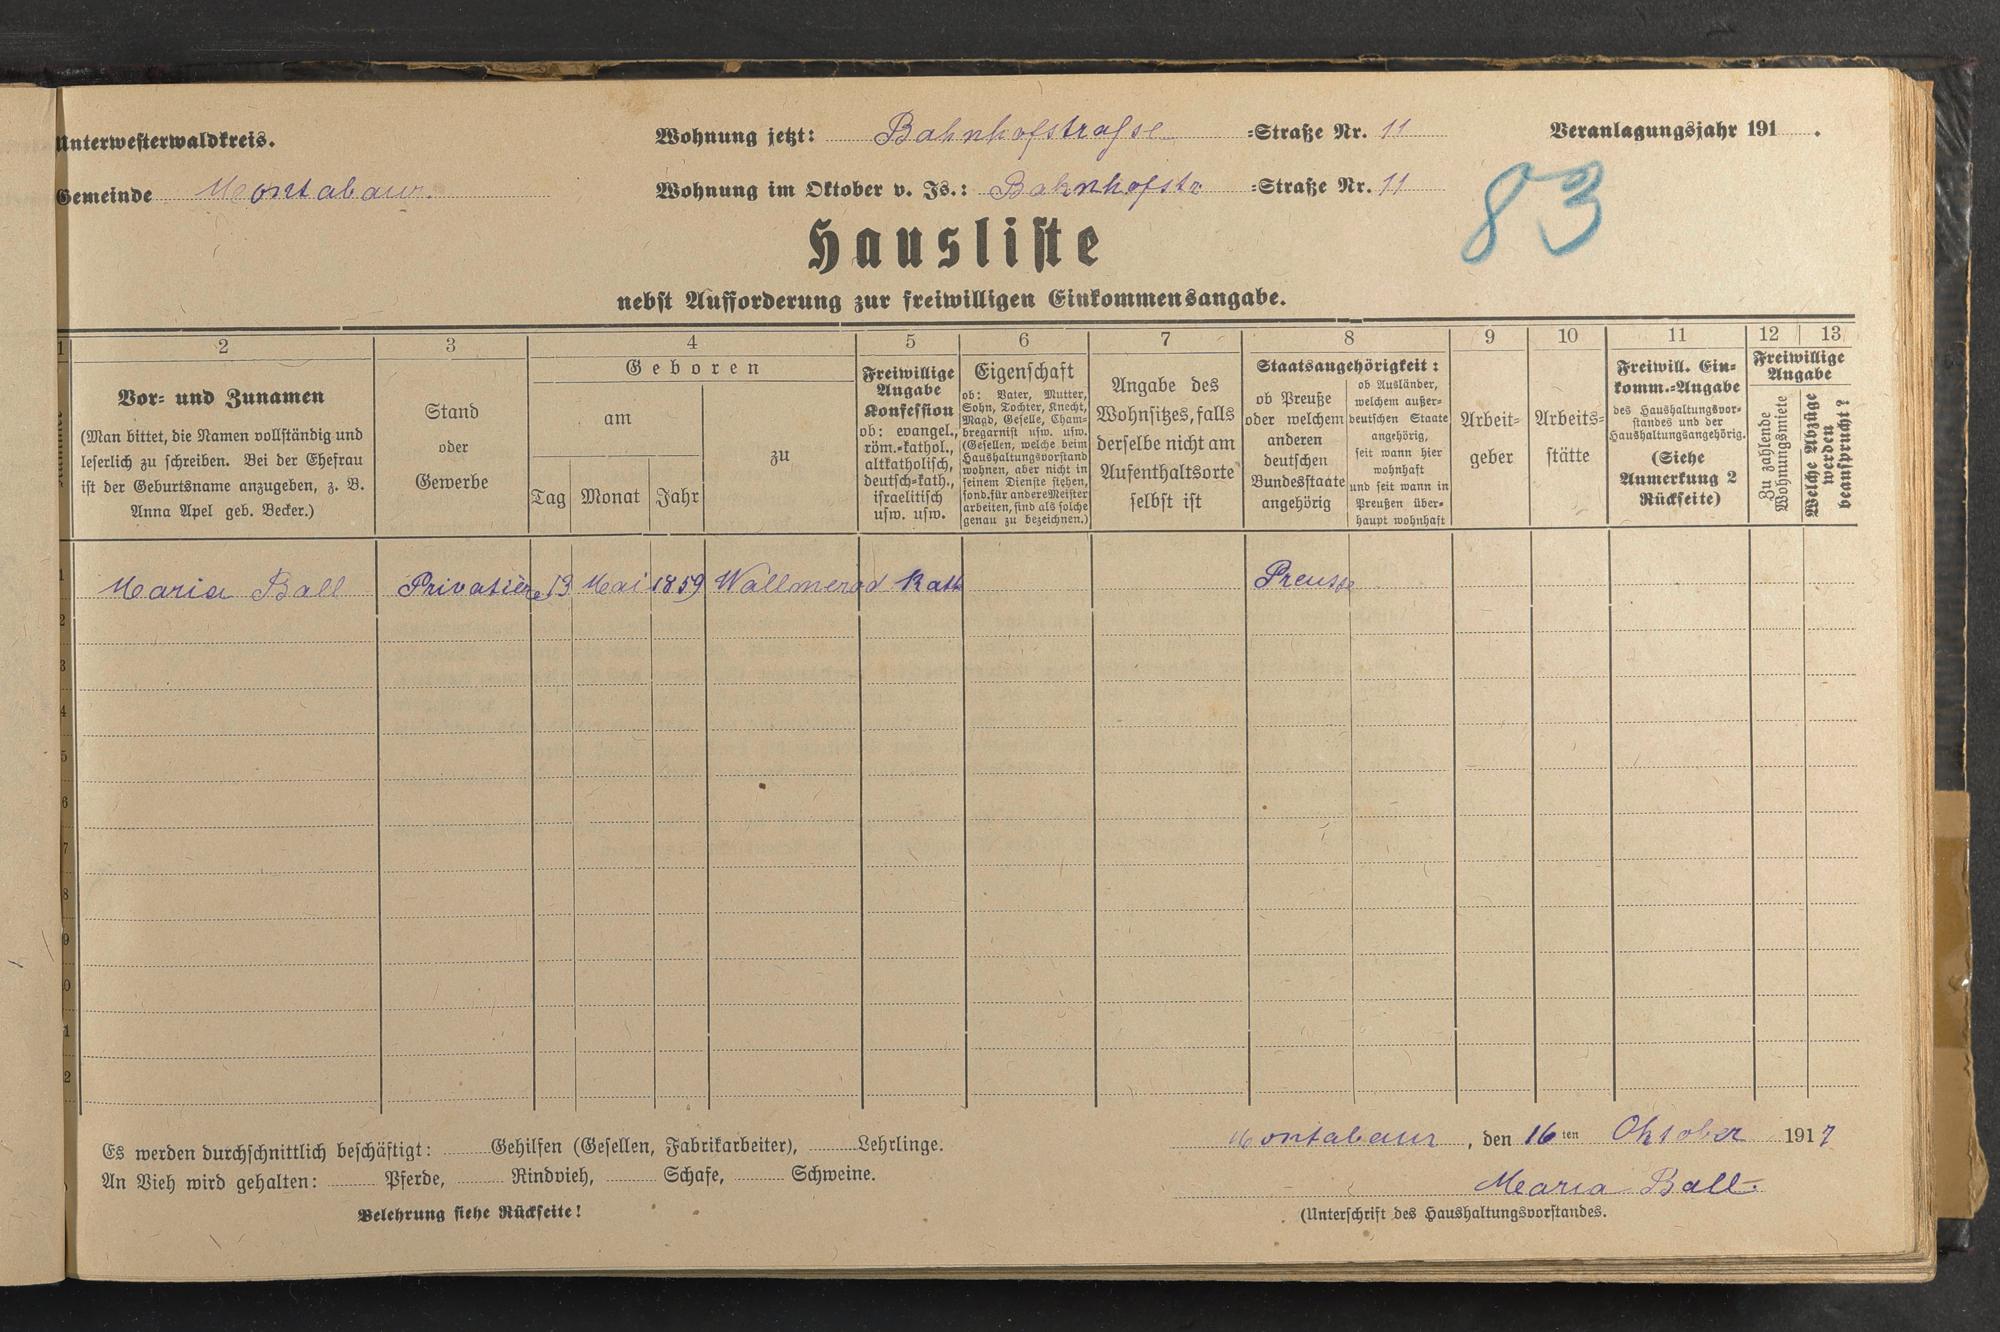 Unterwesterwaldkreis.
Wohnung jetzt: Bahnhofstraße -Straße Nr. 11
Veranlagungsjahr 191 .
Gemeinde Montabaur.
Wohnung im Oktober v. Js.: Bahnhofstr -Straße Nr. 11
83
Hausliste
nebst Aufforderung zur freiwilligen Einkommensangabe.
1 2 3 4 5 6 7 8 9 10 11 12 13
Vor- und Zunamen
(Man bittet, die Namen vollständig und
leserlich zu schreiben. Bei der Ehefrau
ist der Geburtsname anzugeben, z. B.
Anna Apel geb. Becker.)
Stand
oder
Gewerbe
Geboren
am
Tag Monat Jahr
zu
Freiwillige
Angabe
Konfession
ob: evangel.,
röm.-kathol.,
altkatholisch,
deutsch-kath.,
israelitisch
usw. usw.
Eigenschaft
ob: Vater, Mutter,
Sohn, Tochter, Knecht,
Magd, Geselle, Cham-
bregarnist usw. usw.
(Gesellen, welche beim
Haushaltungsvorstand
wohnen, aber nicht in
seinem Dienste stehen,
sond. für andere Meister
arbeiten, sind als solche
genau zu bezeichnen.)
Angabe des
Wohnsitzes, falls
derselbe nicht am
Aufenthaltsorte
selbst ist
Staatsangehörigkeit:
ob Preuße
oder welchem
anderen
deutschen
Bundesstaate
angehörig
ob Ausländer,
welchem außer-
deutschen Staate
angehörig,
seit wann hier
wohnhaft
und seit wann in
Preußen über-
haupt wohnhaft
Arbeit-
geber
Arbeits-
stätte
Freiwill. Ein-
komm.-Angabe
des Haushaltungsvor-
standes und der
Haushaltungsangehörig.
(Siehe
Anmerkung 2
Rückseite)
Freiwillige
Angabe
Zu zahlende
Wohnungsmiete
Welche Abzüge
werden
beansprucht?
1 Maria Ball Privatière 13 Mai 1859 Wallmerod Kath Preusse
2
3
4
5
6
7
8
9
0
1
2
Es werden durchschnittlich beschäftigt: Gehilfen (Gesellen, Fabrikarbeiter), Lehrlinge.
Montabaur, den 16ten Oktober 1917
An Vieh wird gehalten: Pferde, Rindvieh, Schafe, Schweine.
Maria Ball.
Belehrung siehe Rückseite!
(Unterschrift des Haushaltungsvorstandes.